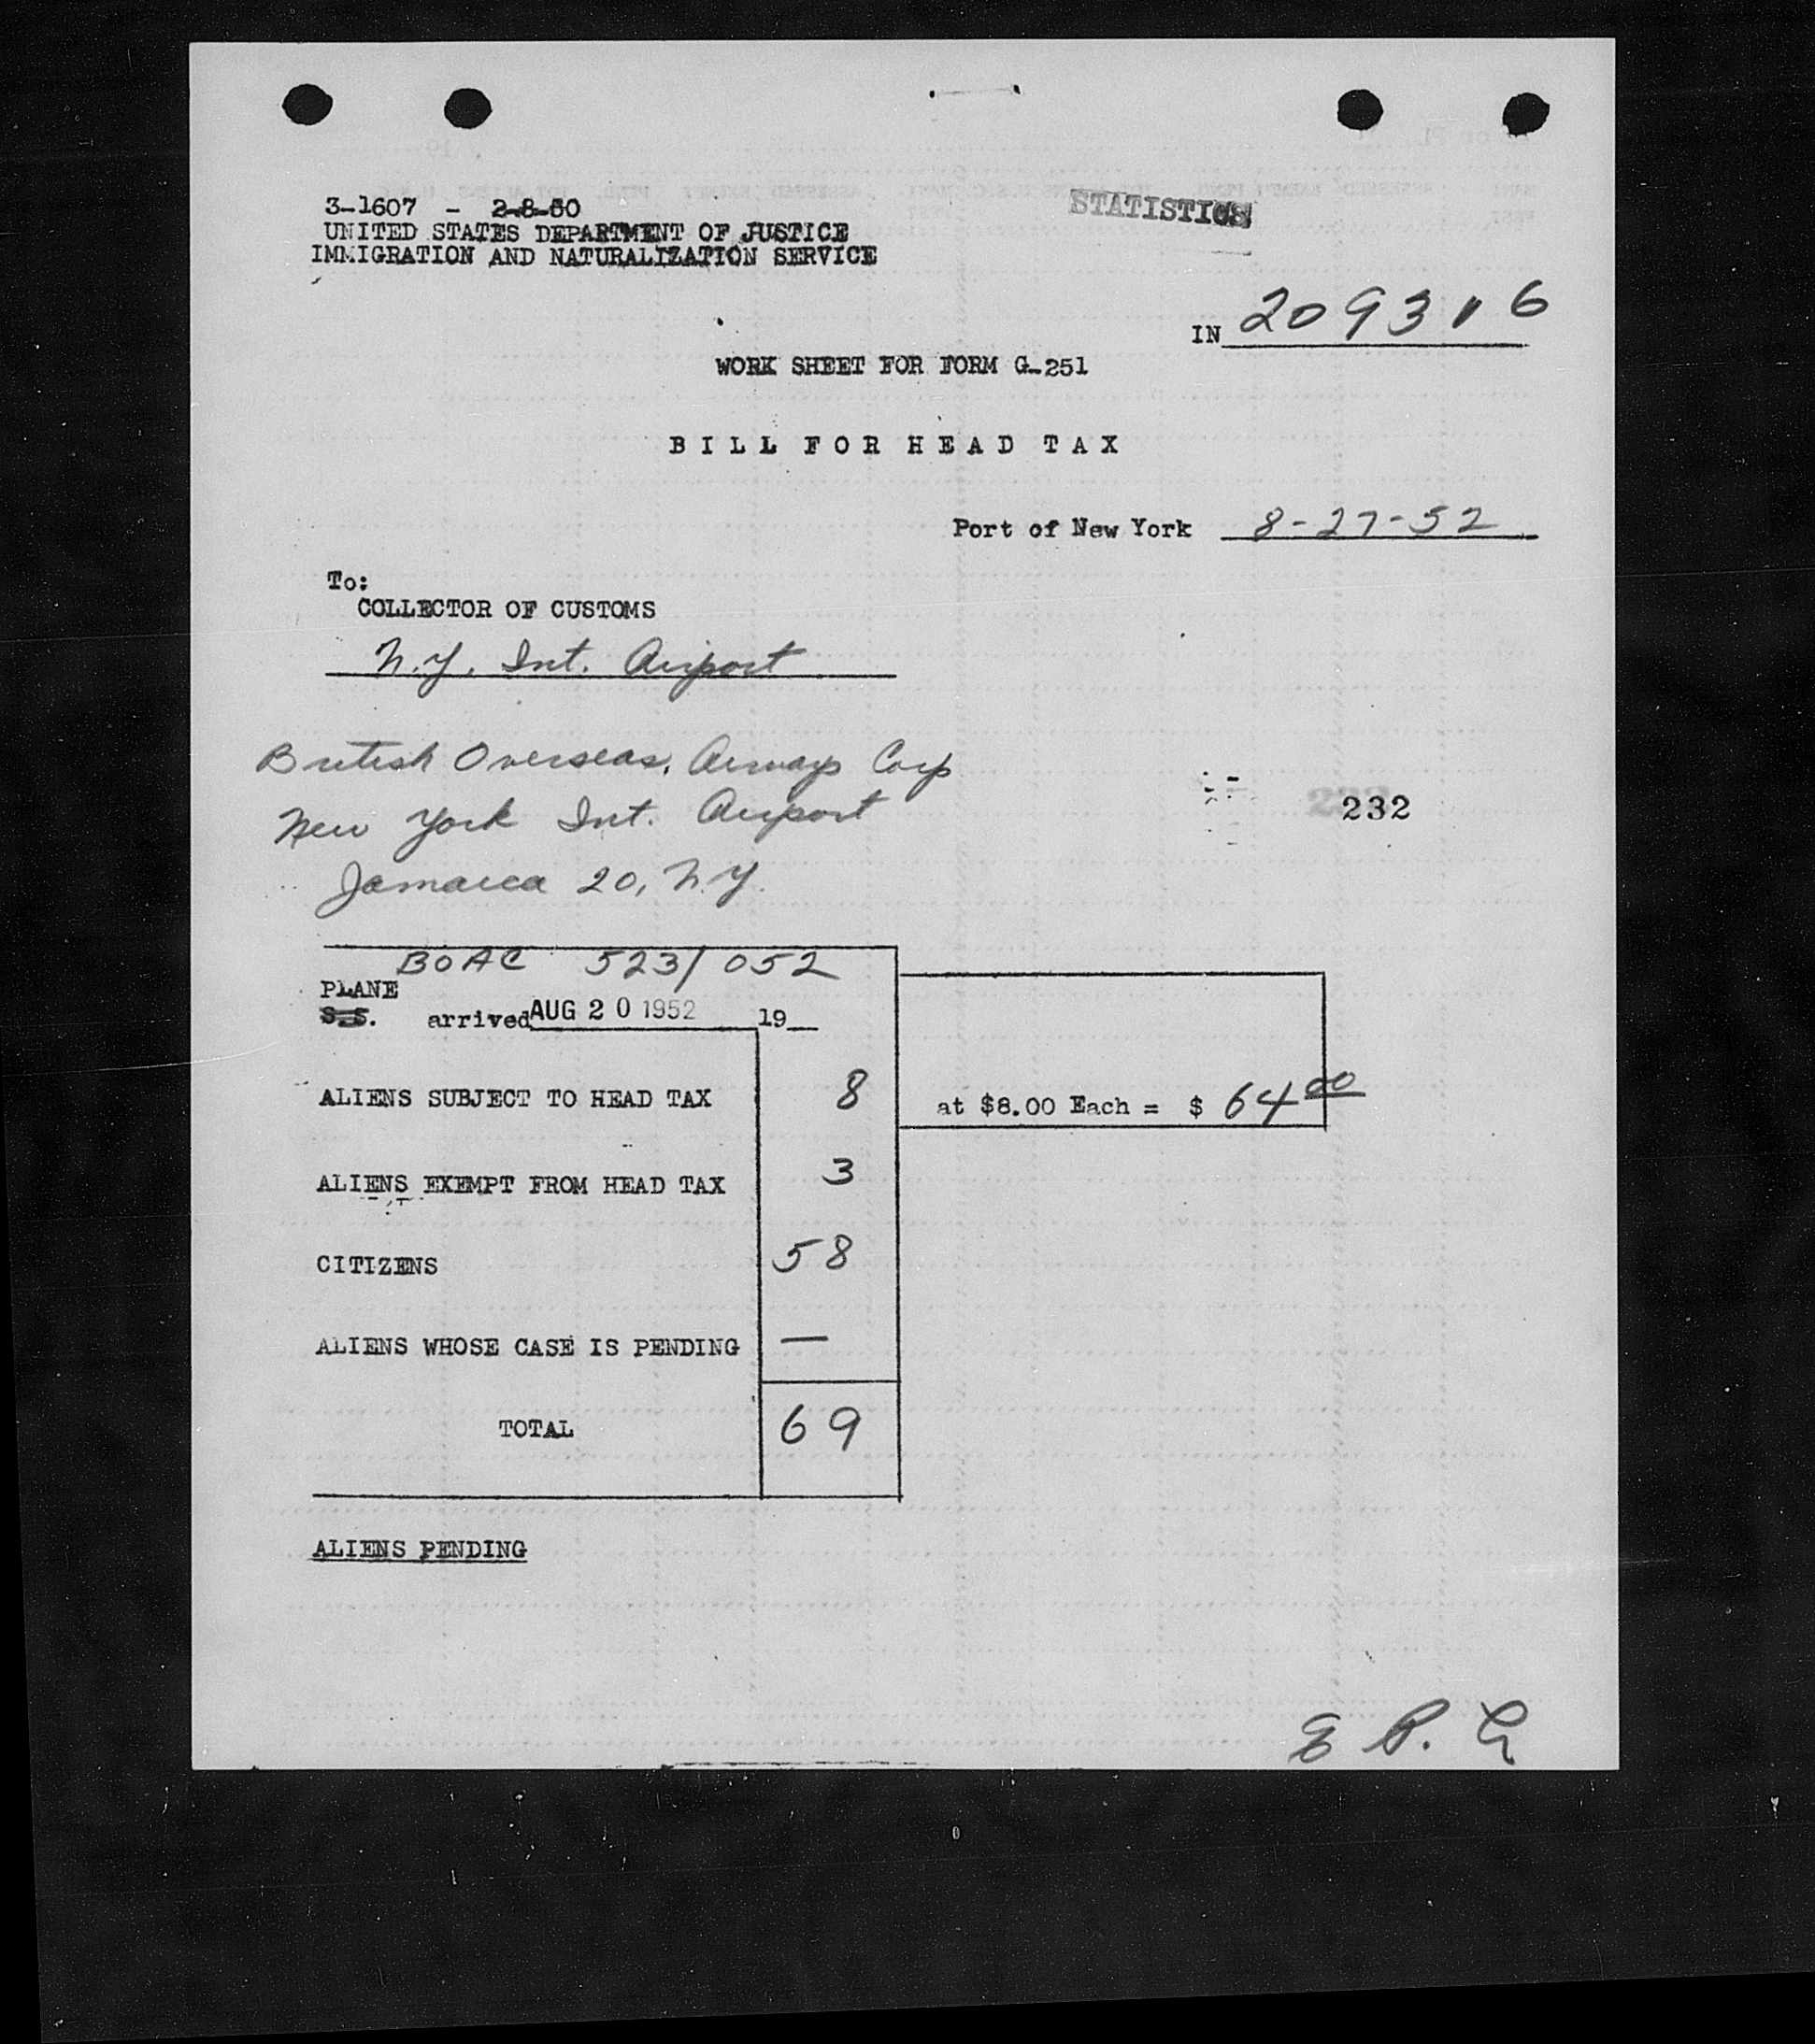 3-1607 - 2-8-50
UNITED STATES DEPARTMENT OF JUSTICE
IMMIGRATION AND NATURALIZATION SERVICE
STATISTICS
IN 209316
WORK SHEET FOR FORM G-251
BILL FOR HEAD TAX
Port of New York 8-27-52
To:
COLLECTOR OF CUSTOMS
N.Y. Int. Airport
British Overseas Airways Corp
New York Int. Airport
Jamaica 20, N.Y.
232
BOAC 523/052
PLANE
S.S. arrived AUG 20 1952 19
ALIENS SUBJECT TO HEAD TAX 8 at $8.00 Each = $ 64 00
ALIENS EXEMPT FROM HEAD TAX 3
CITIZENS 58
ALIENS WHOSE CASE IS PENDING —
TOTAL 69
ALIENS PENDING
E P. G